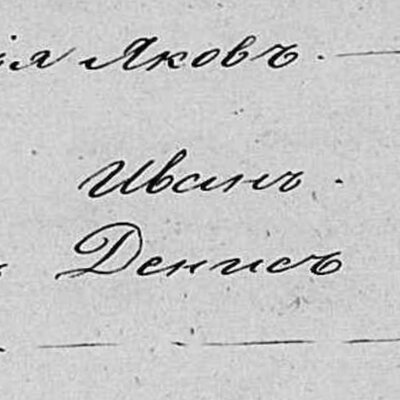 ія Яковъ.
Иванъ.
Денисъ